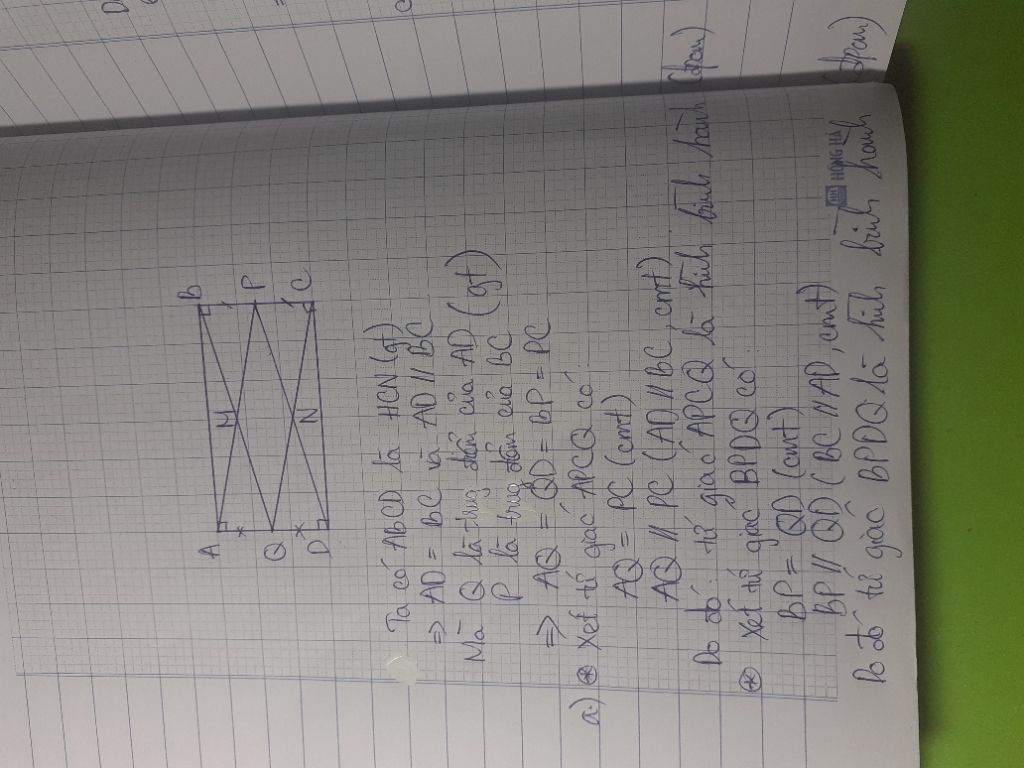 A
B
M
Q
P
N
D
C
Ta có ABCD là HCN (gt)
=> AD = BC và AD // BC
Mà Q là trung điểm của AD (gt)
P là trung điểm của BC
=> AQ = QD = BP = PC
a) * Xét tứ giác APCQ có:
AQ = PC (cmt)
AQ // PC (AD // BC, cmt)
Do đó: tứ giác APCQ là hình bình hành (đpcm)
* Xét tứ giác BPDQ có:
BP = QD (cmt)
BP // QD (BC // AD, cmt)
HỒNG HÀ
Do đó tứ giác BPDQ là hình bình hành (đpcm)